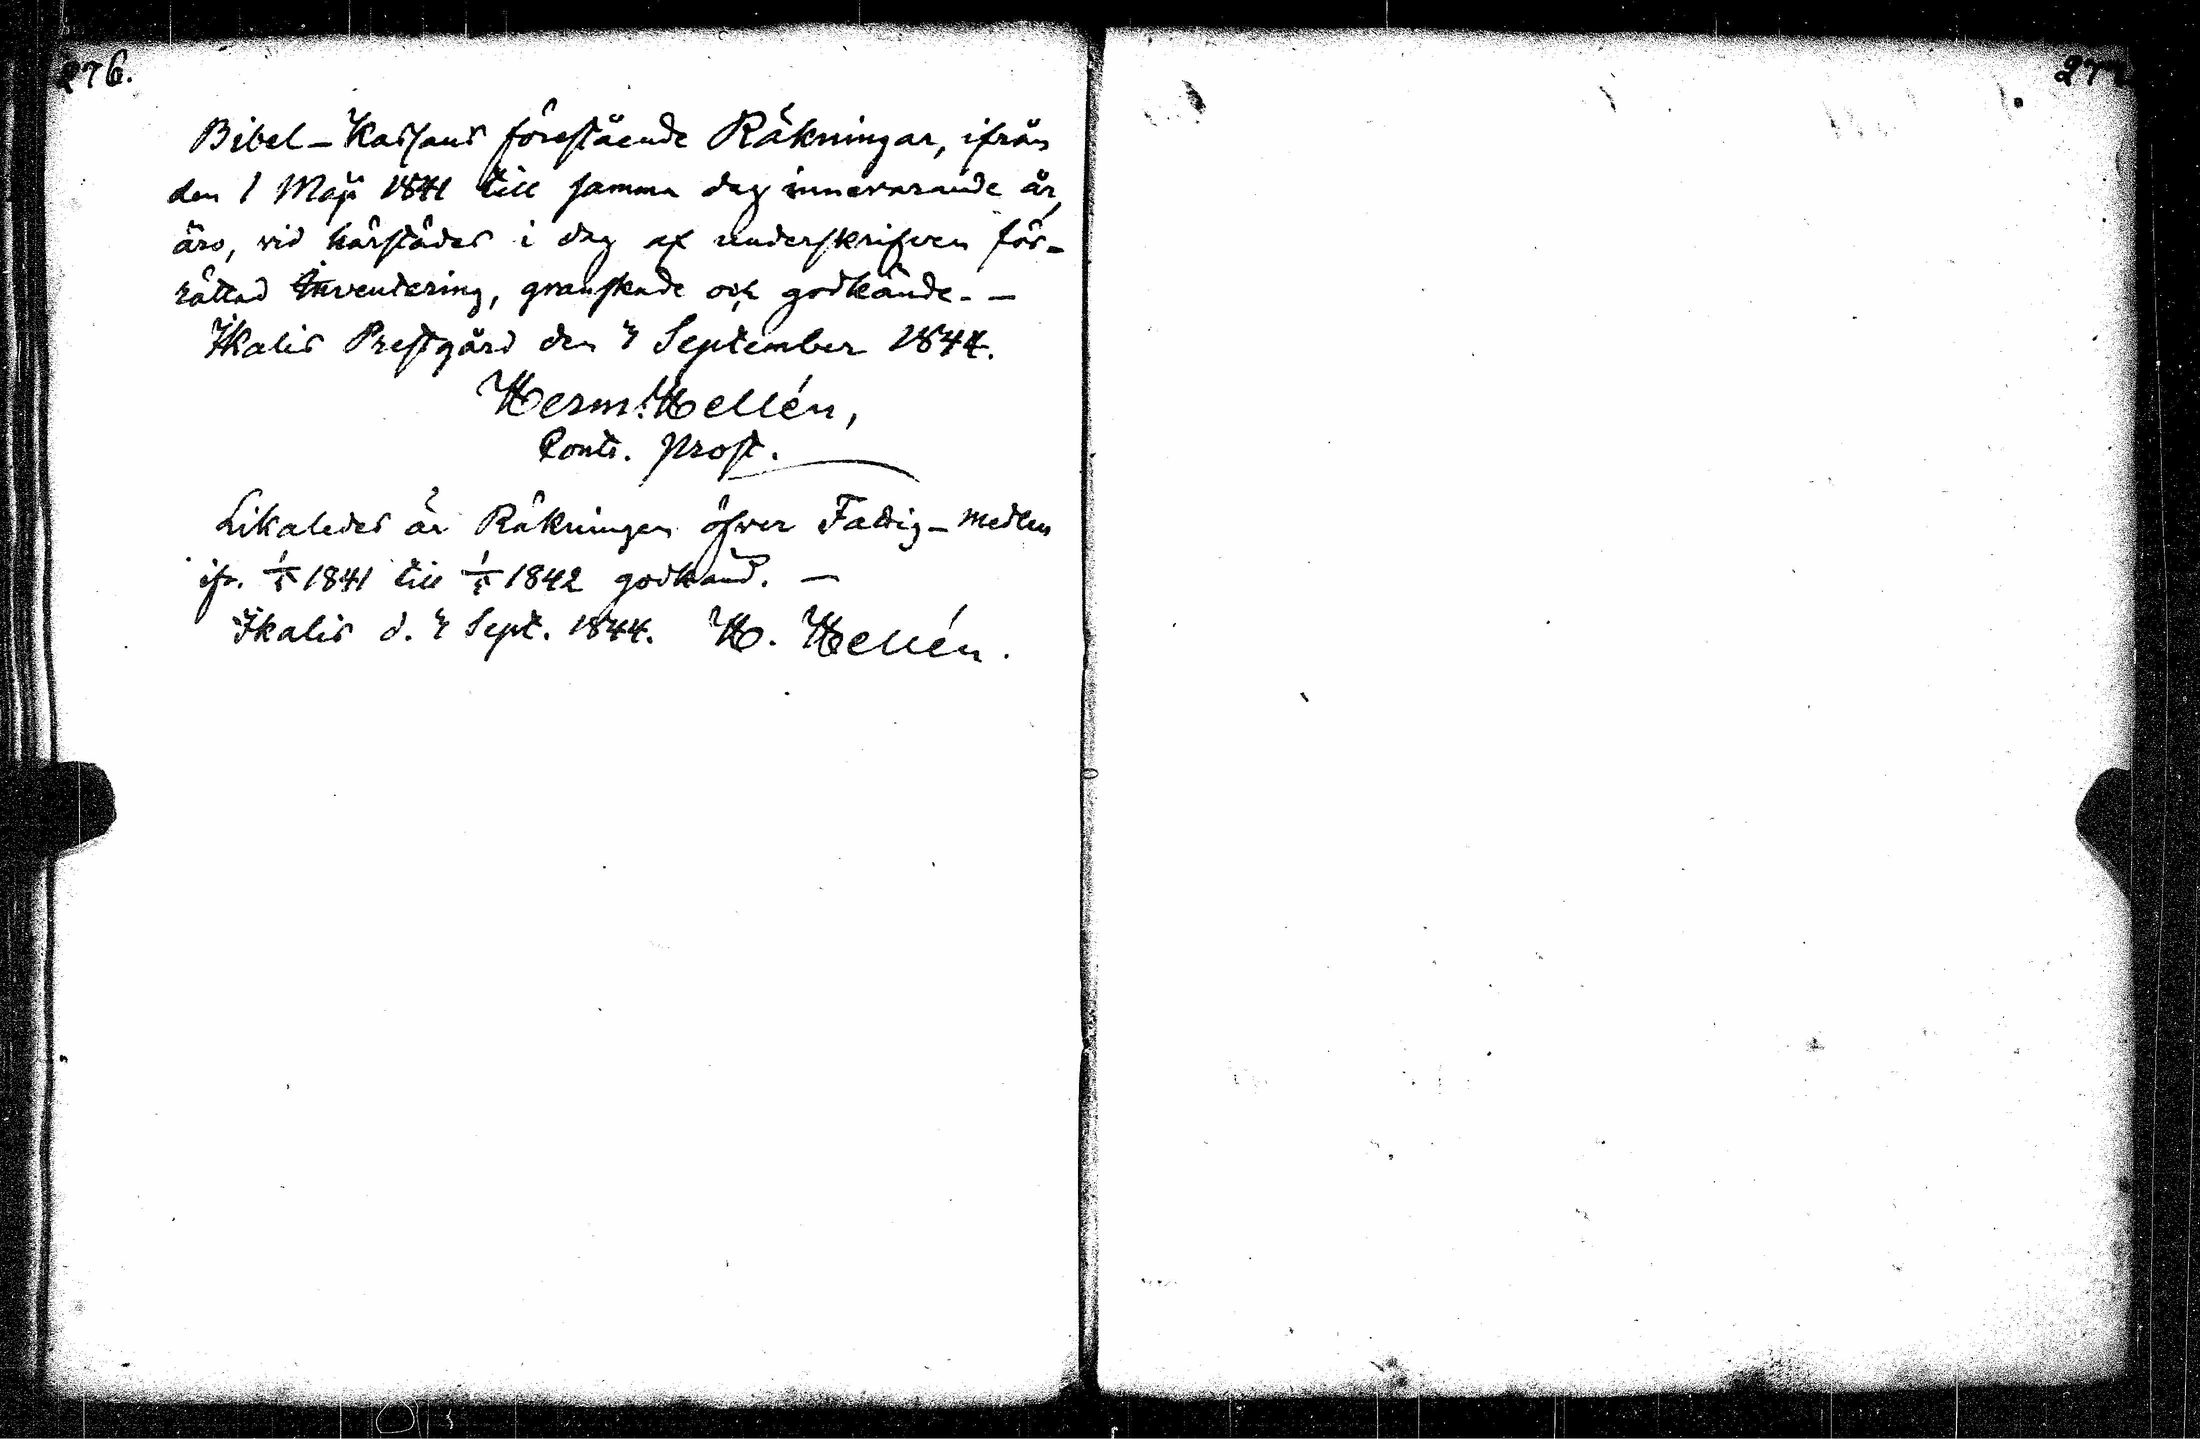 276.
Bibel-Kassans förestående Räkningar, ifrån
den 1 Maji 1841 till samma dag innevarande år,
äro, vid härstädes i dag af underskrifven för-
rättad Inventering, granskade och godkände. —
Ikalis Prestgård den 7 September 1844.
Herm. Hellén,
Contr. Prost.
Likaledes är Räkningen öfver Fattig-medlen
ifr. 1/5 1841 till 1/5 1842 godkänd. —
Ikalis d. 7 Sept. 1844. H. Hellén.
277